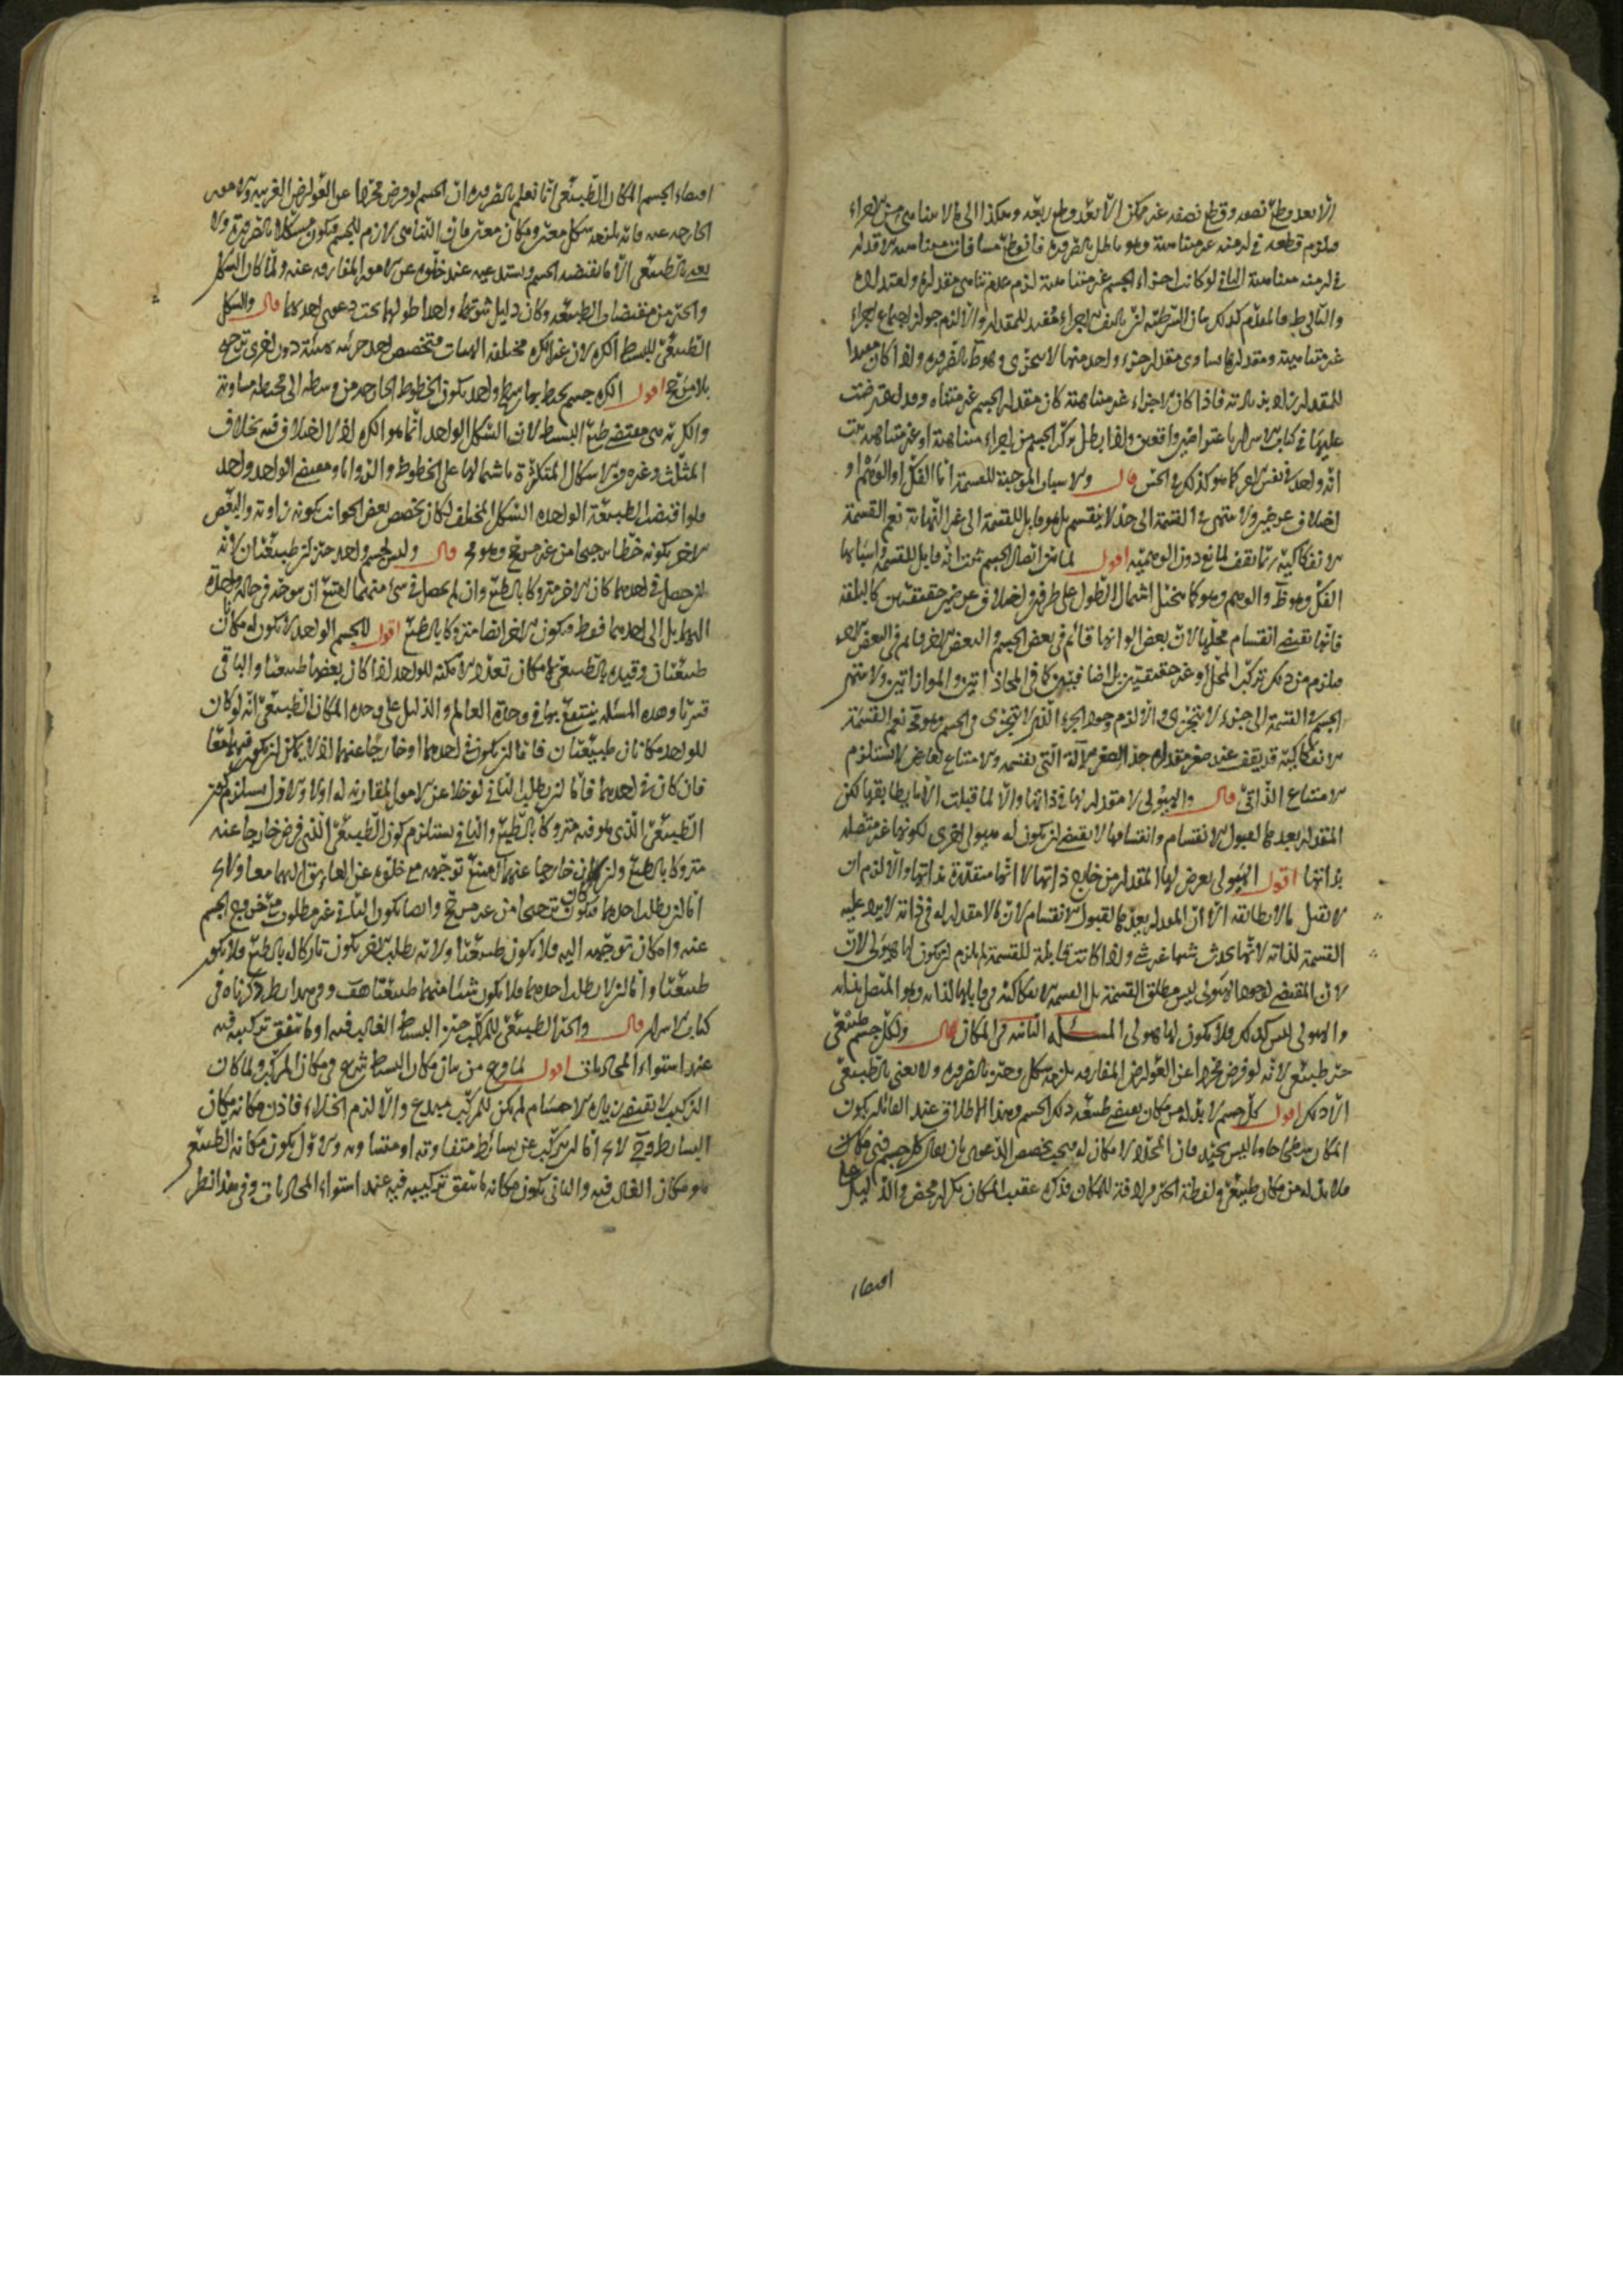 الا بعد قطع نصفه وقطع نصفه غير ممكن الا بعد قطع ربعه وهكذا الى ما لا يتناهى من الاجزاء
فيلزم قطعه في ازمنة غير متناهية وهو باطل بالضرورة فانا نقطع مسافات متناهية الاقدار
في ازمنة متناهية الثاني لو كانت اجزاء الجسم غير متناهية لزم عدم تناهي مقداره
والتالي بط فالمقدم كذلك بيان الشرطية ان تاليف الاجزاء مفيد للمقدار والا لزم جواز اجتماع اجزاء
غير متناهية ومقدارها يساوي مقدار جزء واحد منها لا يتجزى وهو بط بالضرورة واذا كان مفيدا
للمقدار فاذا كان الاجزاء غير متناهية كان مقدار الجسم غير متناه وقد اعترضت
عليها في كتاب الاسرار باعتراضين واقعين واذا بطل تركب الجسم من اجزاء متناهية او غير متناهية ثبت
انه واحد في نفس الامر كما هو كذلك في الحس قال والاسباب الموجبة للقسمة اما الفك او الوهم او
اختلاف عرضين ولا تنتهي القسمة الى حد لا ينقسم بل هو قابل للقسمة الى غير النهاية نعم القسمة
الانفكاكية ربما تقف لمانع دون الوهمية اقول لما بين اتصال الجسم ثبت انه قابل للقسمة واسبابها
الفك وهو ظ والوهم وهو كما يتخيل اشتمال الطول على طرفين واختلاف عرضين حقيقيين كالبلقة
فانها تقتضي انقسام محلها لان بعض الوانها قائم في بعض الجسم والبعض الاخر قائم في البعض الاخر
فيلزم من ذلك تركب المحل او غير حقيقيين بل اضافيين كما في المحاذاتين والموازاتين ولا تنتهي
الجسم في القسمة الى جزء لا يتجزى والا لزم وجود الجزء الذي لا يتجزى في الجسم وهو مح نعم القسمة
الانفكاكية قد يقف عند صغر مقداره جدا لصغر الآلة التي تقسمه والامتناع لعارض لا يستلزم
الامتناع الذاتي قال والهيولى لا مقدار لها في ذاتها والا لما قبلت الا ما يطابقها لكن
المقدار يعدها لقبول الانقسام وانقسامها لا يقتضي ان يكون له هيولى اخرى لكونها غير متصلة
بذاتها اقول الهيولى يعرض لها المقدار من خارج ذاتها لا انها متقدرة بذاتها والا لزم ان
لا تقبل ما لا يطابقه الا ان المقدار يعدها لقبول الانقسام لان ما لا مقدار له في ذاته لا يرد عليه
القسمة لذاته واذا كانت قابلة للقسمة لم يلزم ان يكون لها هيولى لان
لان المقتضي لوجود الهيولى ليس مطلق القسمة بل القسمة الانفكاكية وهو المتصل بذاته
والهيولى ليس كذلك فلا يكون لها هيولى المسئلة الثامنة في المكان قال ولكل جسم طبيعي
حيز طبيعي لانه لو فرض مجردا عن العوارض المفارقة يلزمه شكل وحيز بالضرورة ولا يعنى بالطبيعي
الا ذلك اقول كل جسم لا بد له من مكان يقتضي طبيعة ذلك الجسم وهذا الاطلاق عند القائل بكون
المكان سطحا حاويا ليس بجيد فان المحدد لا مكان له فيجب تخصيص الدعوى بان يقال كل جسم في مكان
فلا بد له من مكان طبيعي ولفظة الحيز مرادفة للمكان فذكره عقيب المكان تكرار محض والدليل على
اقتضاء
اقتضاء الجسم المكان الطبيعي انا نعلم بالضرورة ان الجسم لو فرض مجردا عن العوارض الغريبة والامور
الخارجة عنه فانه يلزمه شكل معين ومكان معين فان التناهي لازم للجسم فيكون مشكلا بالضرورة ولا
يعنى بالطبيعي الا ما يقتضيه الجسم ويستدعيه عند خلوه عن الامور المفارقة عنه ولما كان الشكل
والحيز من مقتضيات الطبيعة وكان دليل ثبوتهما واحدا طولهما تحت دعوى احدهما قال والشكل
الطبيعي للبسيط الكرة لان غير الكرة مختلفة الهيئات فتخصص احد جزئيه بهيئة دون اخرى ترجيح
بلا مرجح اقول الكرة جسم يحيط به سطح واحد يكون الخطوط الخارجة من وسطه الى محيطه متساوية
والكرية هي مقتضى طبع البسيط لان الشكل الواحد انما هو الكرة اذ لا اختلاف فيه بخلاف
المثلث وغيره من الاشكال المتكثرة باشتمالها على الخطوط والزوايا ومقتضى الواحد واحد
فلو اقتضت الطبيعة الواحدة الشكل المختلف لكان تخصص بعض الجوانب بكونه زاوية والبعض
الاخر بكونه خطا ترجيحا من غير مرجح وهو مح قال وليس لجسم واحد حيزان طبيعيان لانه
ان حصل في احدهما كان الاخر متروكا بالطبع وان لم يحصل في شئ منهما امتنع ان يتوجه في حالة واحدة
اليهما بل الى احدهما فقط فيكون الاخر ايضا متروكا بالطبع اقول للجسم الواحد لا يكون له مكانان
طبيعيان وقيده بالطبيعي لامكان تعدد الامكنة للواحد اذا كان بعضها طبيعيا والباقي
قسريا وهذه المسئلة ينتفع بها في وحدة العالم والدليل على وحدة المكان الطبيعي انه لو كان
للواحد مكانان طبيعيان فاما ان يكون في احدهما او خارجا عنهما اذ لا يمكن ان يكون فيهما معا
فان كان في احدهما فاما ان يطلب الثاني لو خلا عن الامور المقارنة له او لا والاول يستلزم كون
الطبيعي الذي هو فيه متروكا بالطبع والثاني يستلزم كون الطبيعي الذي فرض خارجا عنه
متروكا بالطبع وان كان خارجا عنهما امتنع توجهه مع خلوه عن العايق اليهما معا ولا
اما ان يطلب احدهما فيكون ترجيحا من غير مرجح وايضا يكون الثاني غير مطلوب مع خروج الجسم
عنه وامكان توجهه اليه فلا يكون طبيعيا ولانه بطلب الاخر يكون تاركا له بالطبع فلا يكون
طبيعيا واما ان لا يطلب احدهما فلا يكون شئ منهما طبيعيا هف وفي هذا نظر ذكرناه في
كتاب الاسرار قال والحيز الطبيعي للمركب حيز البسيط الغالب فيه او ما تتفق تركيبه فيه
عند استواء المحاذيات اقول لما فرغ من بيان مكان البسيط شرع في مكان المركب ولما كان
التركيب لا يقتضي زيادة الاجسام لم يكن للمركب مبدع والا لزم الخلاء فاذن مكانه مكان
البسايط وح لا يخ اما ان تركب عن بسائط متفاوتة او متساوية والاول يكون مكانه الطبيعي
هو مكان الغالب فيه والثاني يكون مكانه ما تتفق تركيبه فيه عند استواء المحاذيات وفي هذا نظر